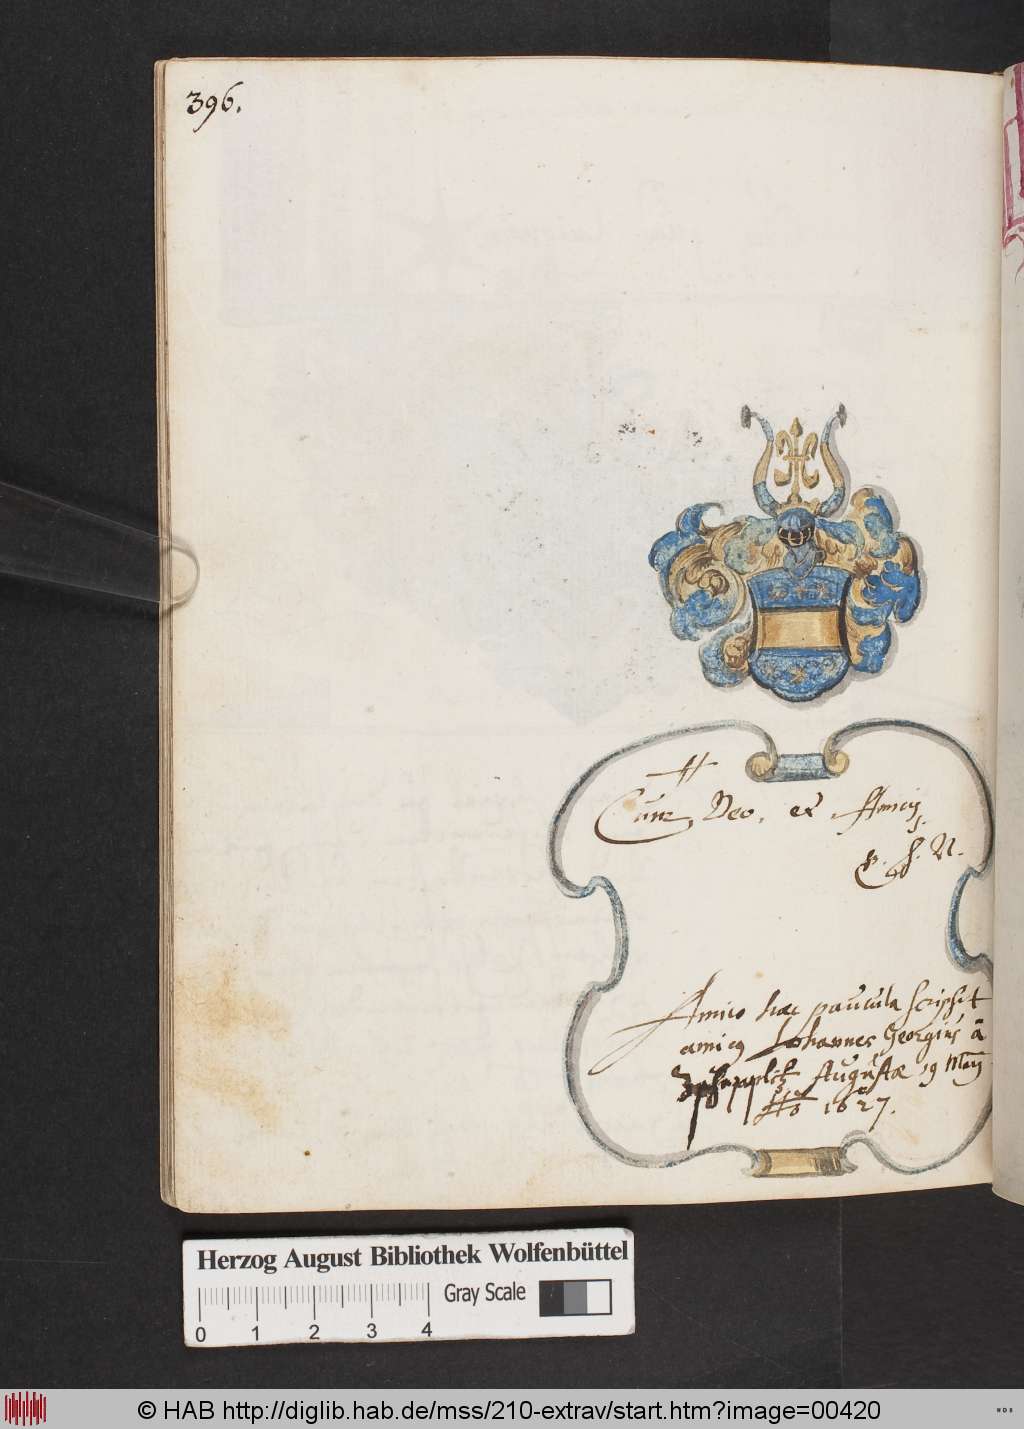 396.
H
Cum Deo, et Amicis
Amico hæc paucula scripsit
amicus Johannes Georgius à
Augustæ 19 Maij
Aō 1627.
Herzog August Bibliothek Wolfenbüttel
Gray Scale
0 1 2 3 4
© HAB http://diglib.hab.de/mss/210-extrav/start.htm?image=00420